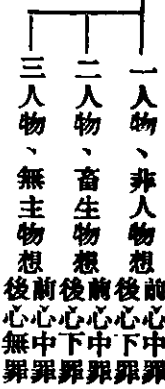 一人物、非人物想
前心中罪
後心下罪
二人物、畜生物想
前心中罪
後心下罪
三人物、無主物想
前心中罪
後心無罪